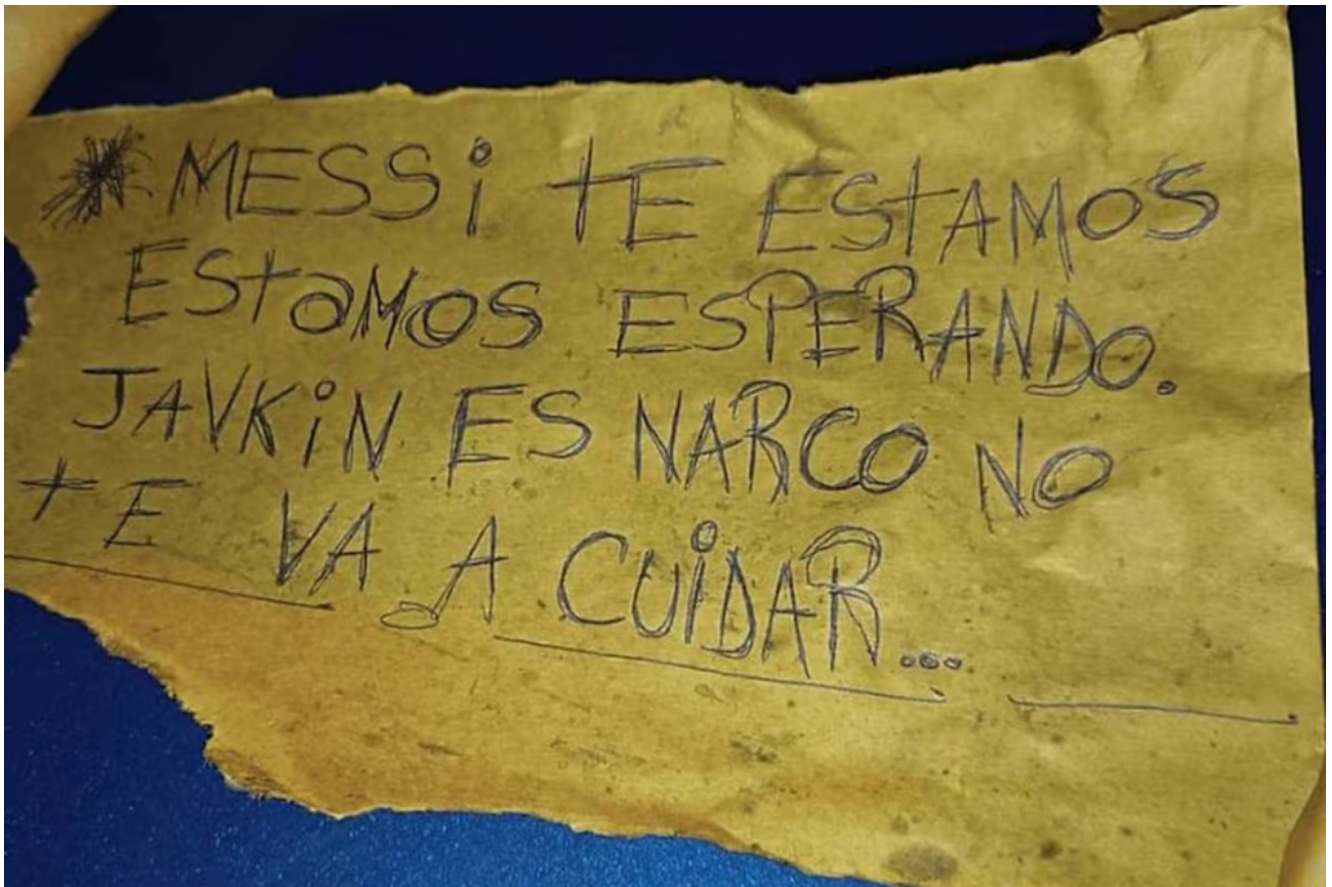 * MESSi tE EStAMOS
EStaMOS ESPERANDO.
JAVKiN ES NARCO NO
tE VA A CUiDAR...